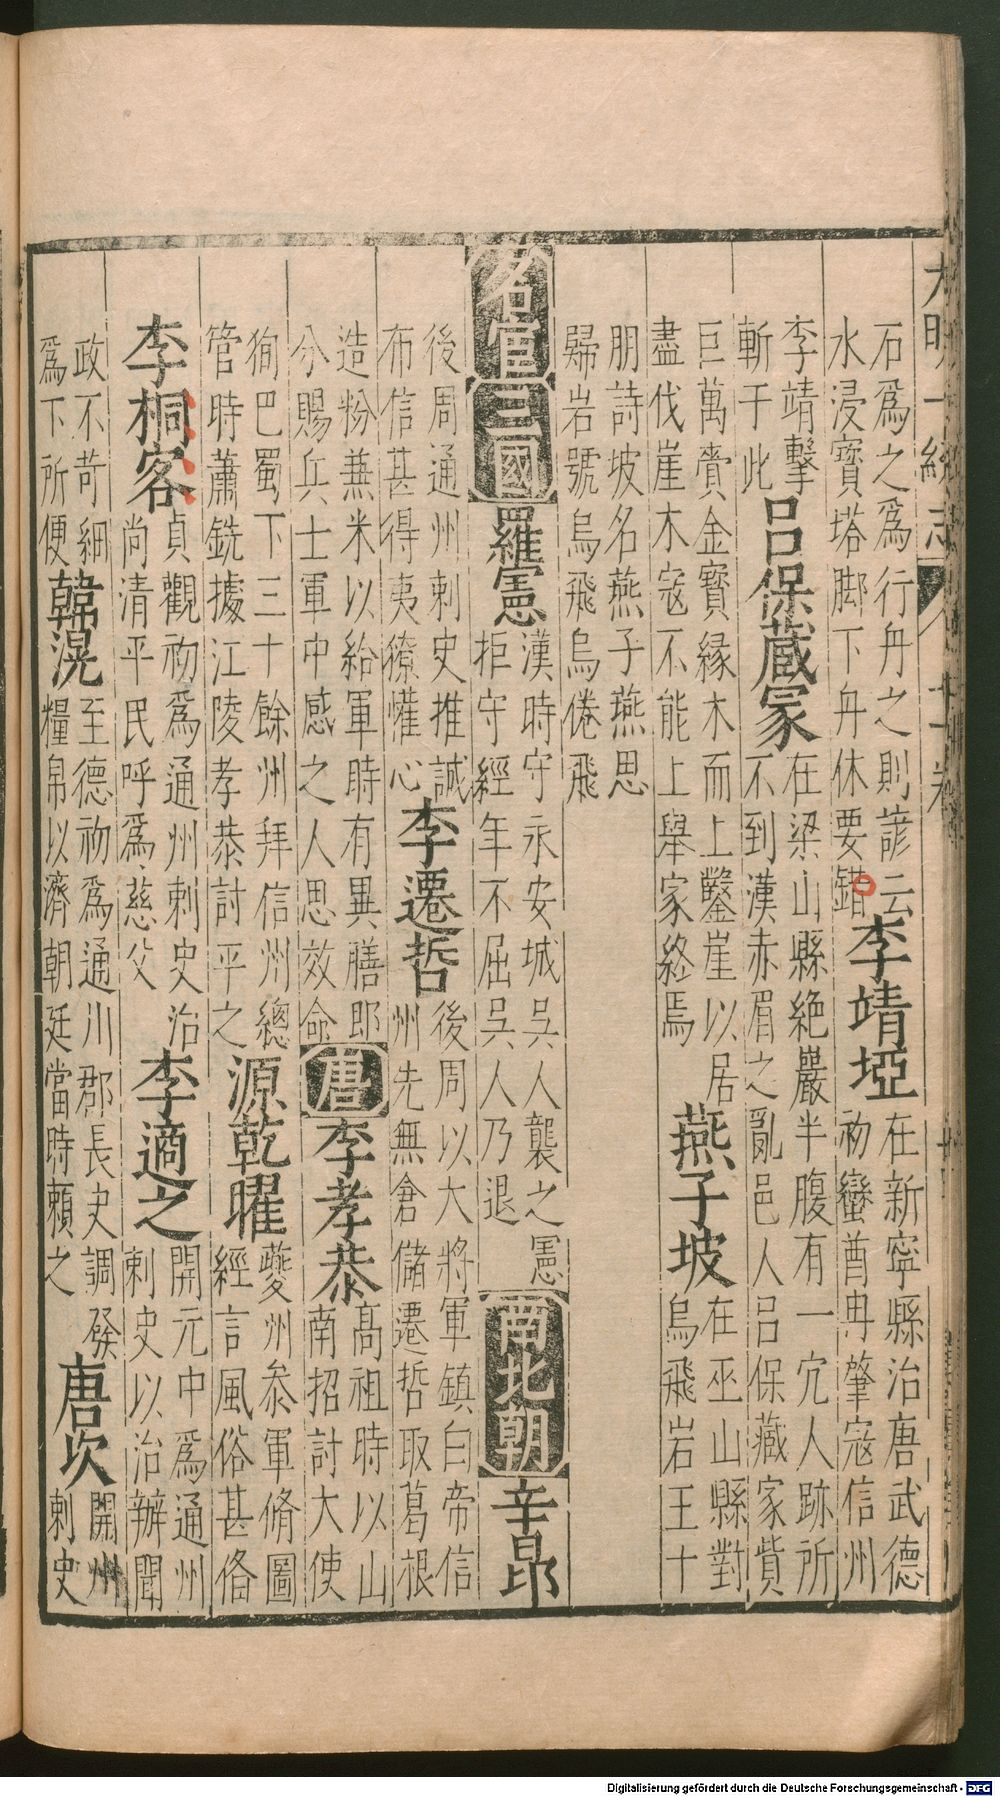 石為之為行舟之則諺云
水浸寳塔脚下舟休要錯
李靖埡
在新寧縣治唐武德
初蠻酋冉肇寇信州
李靖擊
斬于此
吕保藏家
在梁山縣絶巖半腹有一穴人跡所
不到漢赤眉之亂邑人吕保藏家貲
巨萬賫金寳縁木而上鑿崖以居
盡伐崖木寇不能上舉家終焉
燕子坡
在巫山縣對
烏飛岩王十
朋詩坡名燕子燕思
歸岩號烏飛烏倦飛
名宦
三國
羅憲
漢時守永安城吳人襲之憲
拒守經年不屈吳人乃退
南北朝
辛昂
後周通州刺史推誠
布信甚得夷獠懽心
李遷哲
後周以大將軍鎮白帝信
州先無倉儲遷哲取葛根
造粉兼米以給軍時有異膳即
分賜兵士軍中感之人思效命
唐
李孝恭
高祖時以山
南招討大使
狥巴蜀下三十餘州拜信州總
管時蕭銑據江陵孝恭討平之
源乾曜
夔州叅軍脩圖
經言風俗甚俻
李桐客
貞觀初為通州刺史治
尚清平民呼為慈父
李適之
開元中為通州
刺史以治辦聞
政不苛細
為下所便
韓滉
至德初為通川郡長史調發
糧帛以濟朝廷當時頼之
唐次
開州
刺史
大明一統志
十卷
Digitalisierung gefördert durch die Deutsche Forschungsgemeinschaft - DFG